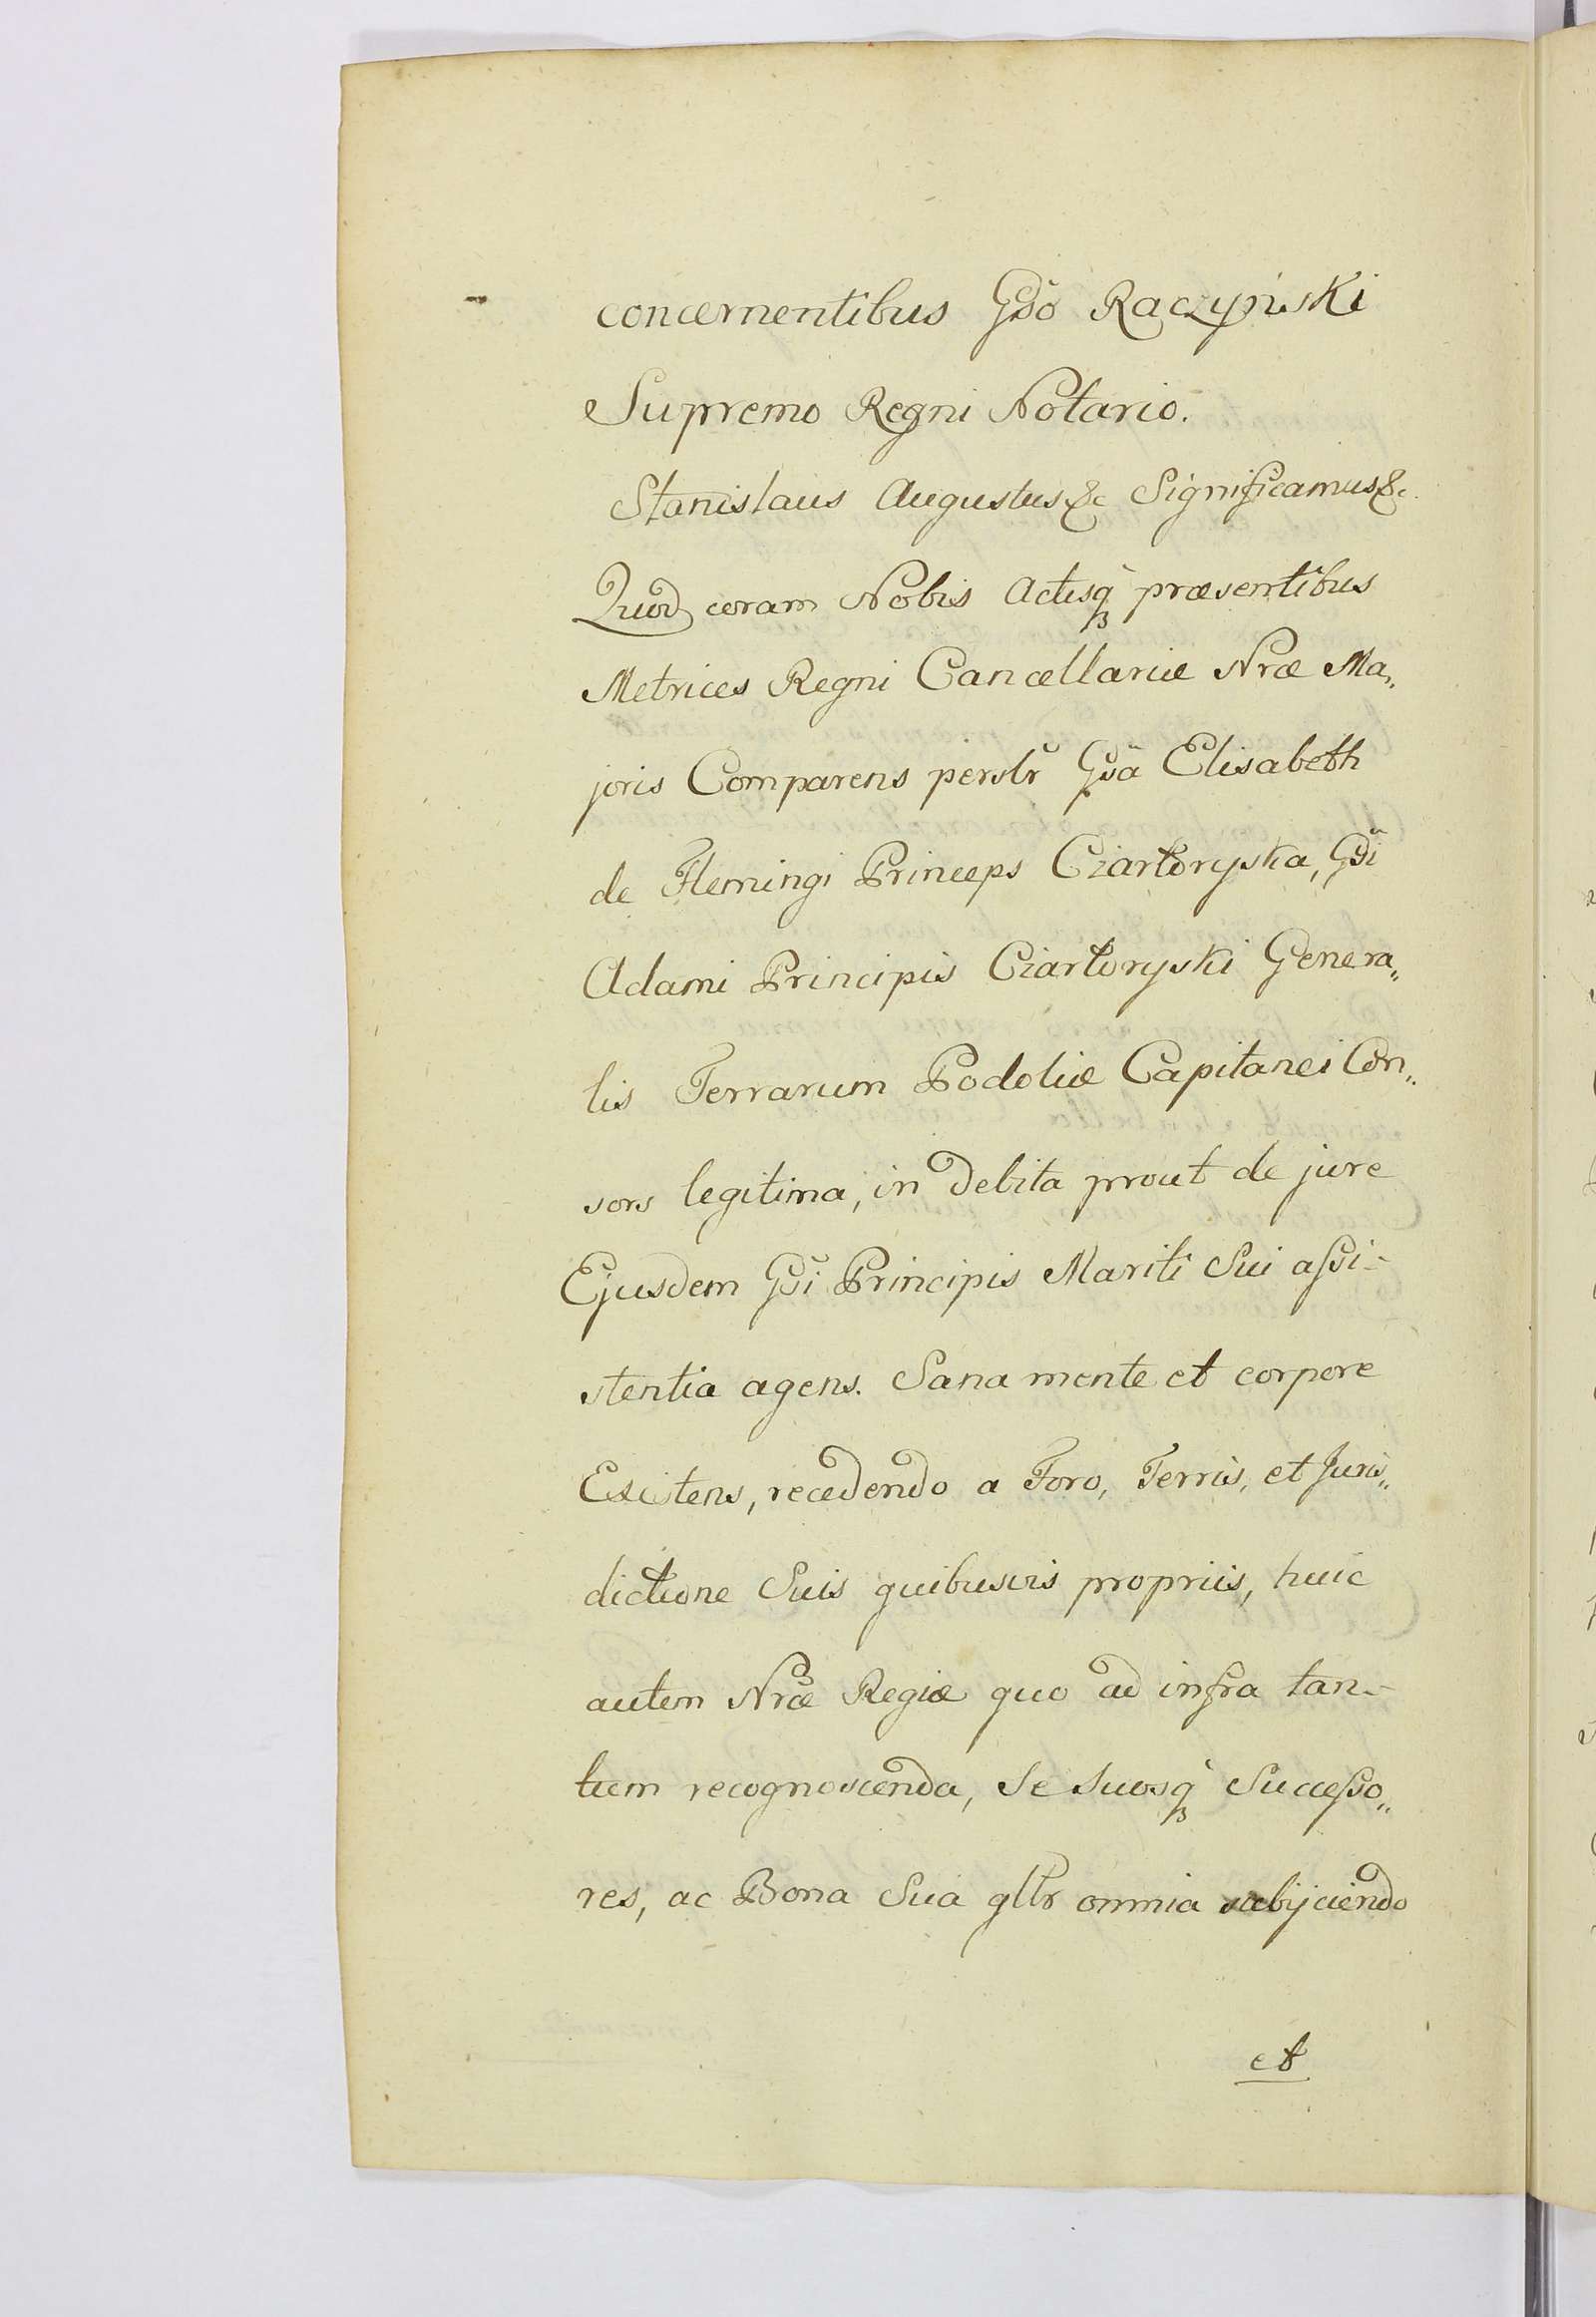 concernentibus Gso Raczyński
Supremo Regni Notario.
Stanislaus Augustus &c Significamus &c.
Quod coram Nobis Actisq præsentibus
Metrices Regni Cancellariæ Nræ Ma„
joris Comparens persolr Gsa Elisabeth
de Flemingi Princeps Czartoryska, Gsi
Adami Principis Czartoryski Genera„
lis Terrarum Podoliæ Capitanei Con„
sors legitima, in debita prout de jure
Ejusdem Gsi Principis Mariti Sui assi-
stentia agens. Sana mente et corpore
Existens, recedendo a Foro, Terris, et Juris„
dictione Suis quibusvis propriis, huic
autem Nræ Regiæ quo ad infra tan-
tum recognoscenda, Se Suosq Successo„
res, ac Bona Sua gltr omnia subijciendo
et